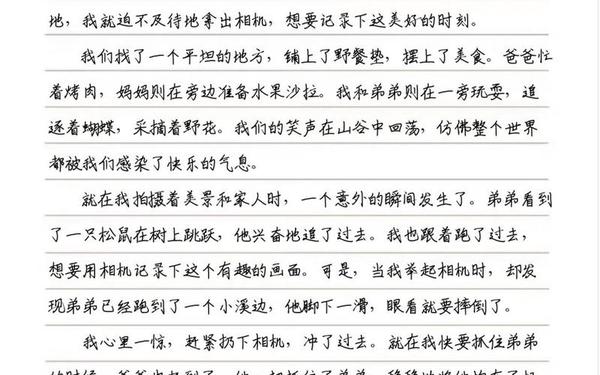 地，我就迫不及待地拿出相机，想要记录下这美好的时刻。
我们找了一个平坦的地方，铺上了野餐垫，摆上了美食。爸爸忙
着烤肉，妈妈则在旁边准备水果沙拉。我和弟弟则在一旁玩耍，追
逐着蝴蝶，采摘着野花。我们的笑声在山谷中回荡，仿佛整个世界
都被我们感染了快乐的气息。
就在我拍摄着美景和家人时，一个意外的瞬间发生了。弟弟看到
了一只松鼠在树上跳跃，他兴奋地追了过去。我也跟着跑了过去，
想要用相机记录下这个有趣的画面。可是，当我举起相机时，却发
现弟弟已经跑到了一个小溪边，他脚下一滑，眼看就要摔倒了。
我心里一惊，赶紧扔下相机，冲了过去。就在我快要抓住弟弟